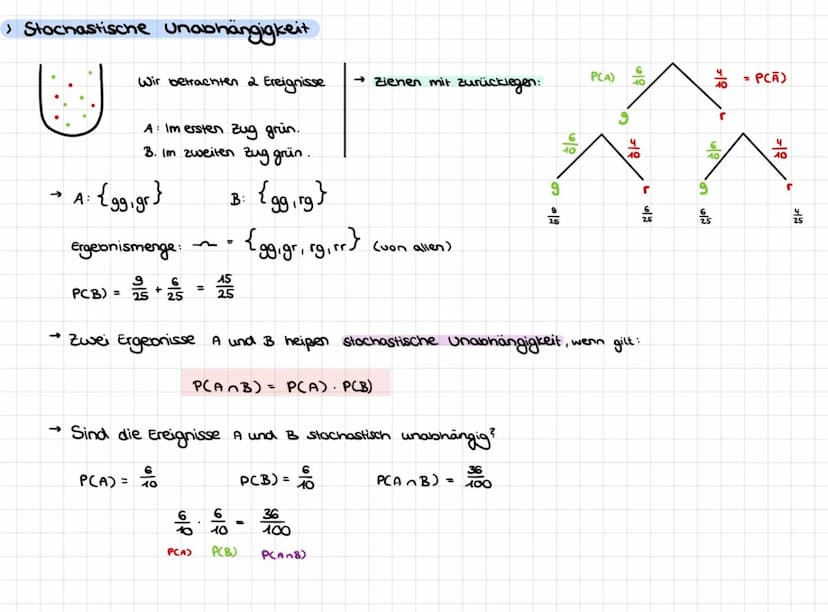 ) Stochastische Unabhängigkeit
Wir betrachten 2 Ereignisse
A: Im ersten Zug grün.
B: Im zweiten Zug grün.
→ Ziehen mit zurücklegen:
P(A) 6/10 4/10 = P(Ā)
g r
6/10 4/10 6/10 4/10
g r g r
9/25 6/25 6/25 4/25
→ A: {gg,gr} B: {gg,rg}
Ergebnismenge: Ω = {gg,gr, rg,rr} (von allen)
P(B) = 9/25 + 6/25 = 15/25
→ Zwei Ergebnisse A und B heißen stochastische Unabhängigkeit, wenn gilt:
P(A∩B) = P(A) · P(B)
→ Sind die Ereignisse A und B stochastisch unabhängig?
P(A) = 6/10 P(B) = 6/10 P(A∩B) = 36/100
6/10 · 6/10 = 36/100
P(A) P(B) P(A∩B)